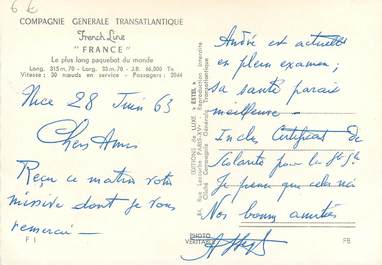 6 €
COMPAGNIE GENERALE TRANSATLANTIQUE
French Line
"FRANCE"
Le plus long paquebot du monde
Long. 315 m,70 - Larg. 33 m,70 - J.B. 66,000 Tx
Vitesse : 30 nœuds en service - Passagers : 2044
Nice 28 Juin 63
Chers Amis
Reçu ce matin votre
missive dont je vous
remercie
F 1
EDITIONS de LUXE « ESTEL »
PARIS-XVe
Reproduction interdite
Cliché Compagnie Générale Transatlantique
PHOTO
VERITABLE
André est actuellt
en plein examen ;
sa santé paraît
meilleure
Inclus Certificat de
Scolarité pour le
Je pense que cela
Nos bonnes amitiés
FB